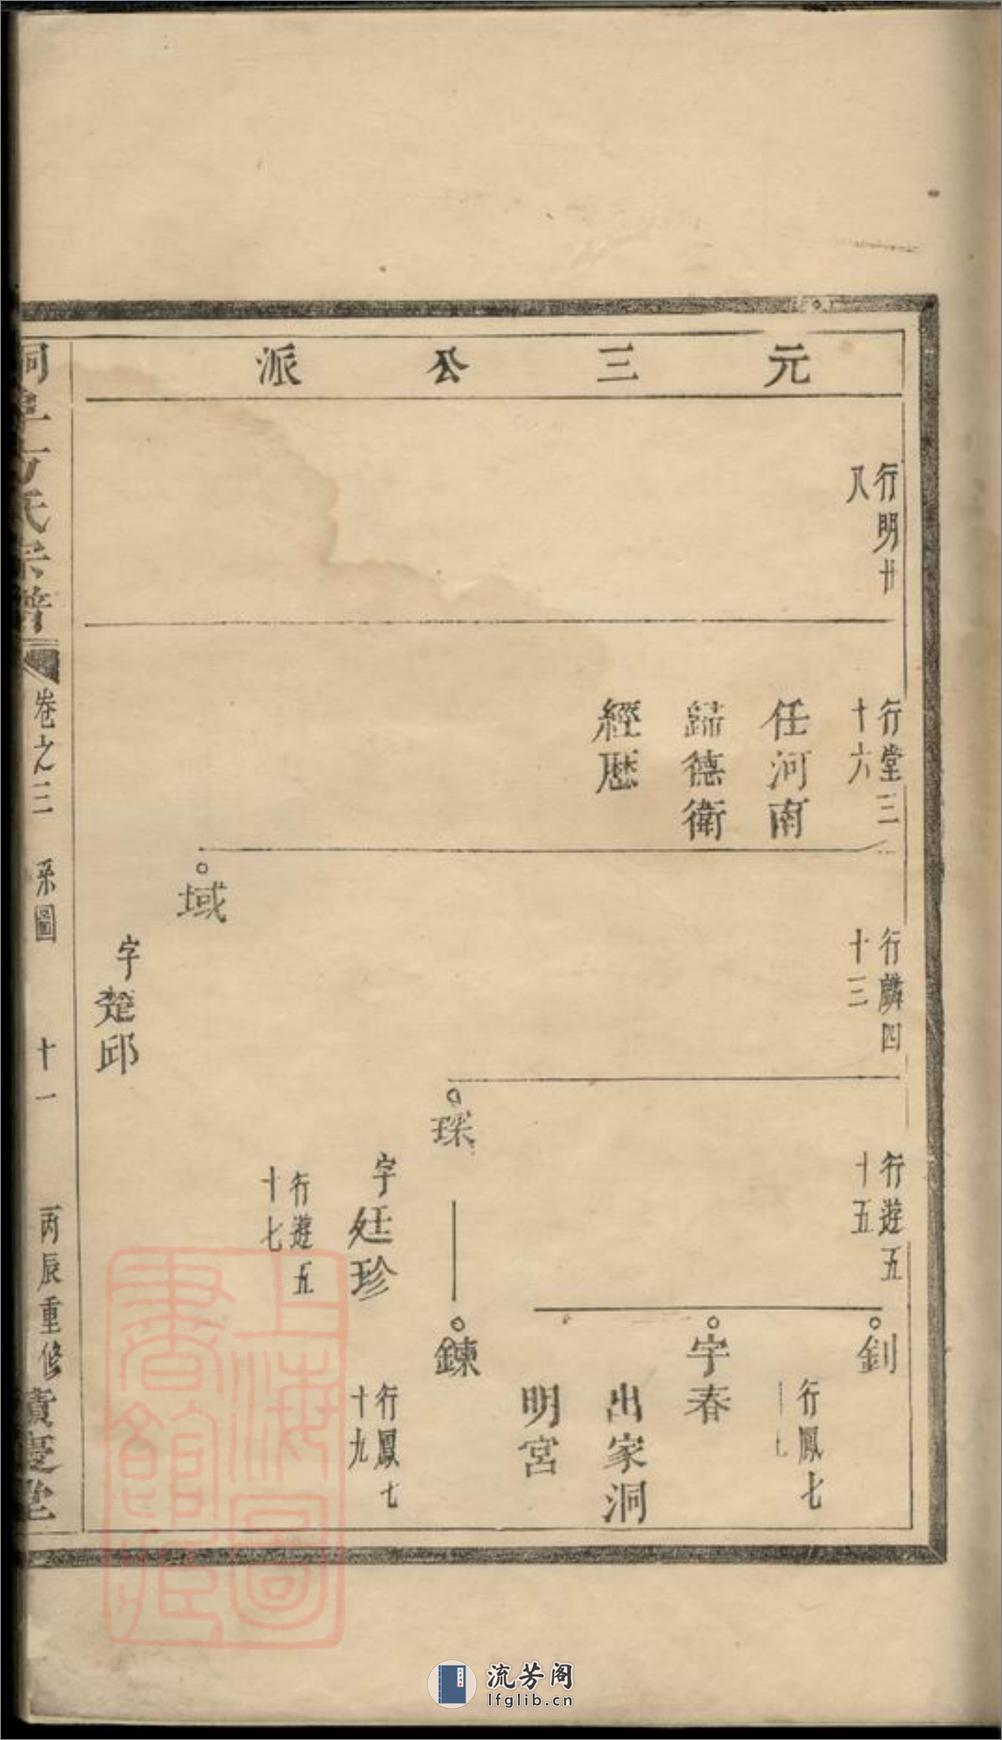 元三公派
行明廿
八
行堂三
十六
任河南
歸德衛
經歷
行麟四
十三
域
字楚邱
行遊五
十五
琛
字廷珍
行遊五
十七
釗
行鳳七
十七
宇春
出家洞
明宮
鍊
行鳳七
十九
方氏宗譜
卷之三
系圖
十一
丙辰重修
上海圖
書館藏
流芳阁
lfglib.cn